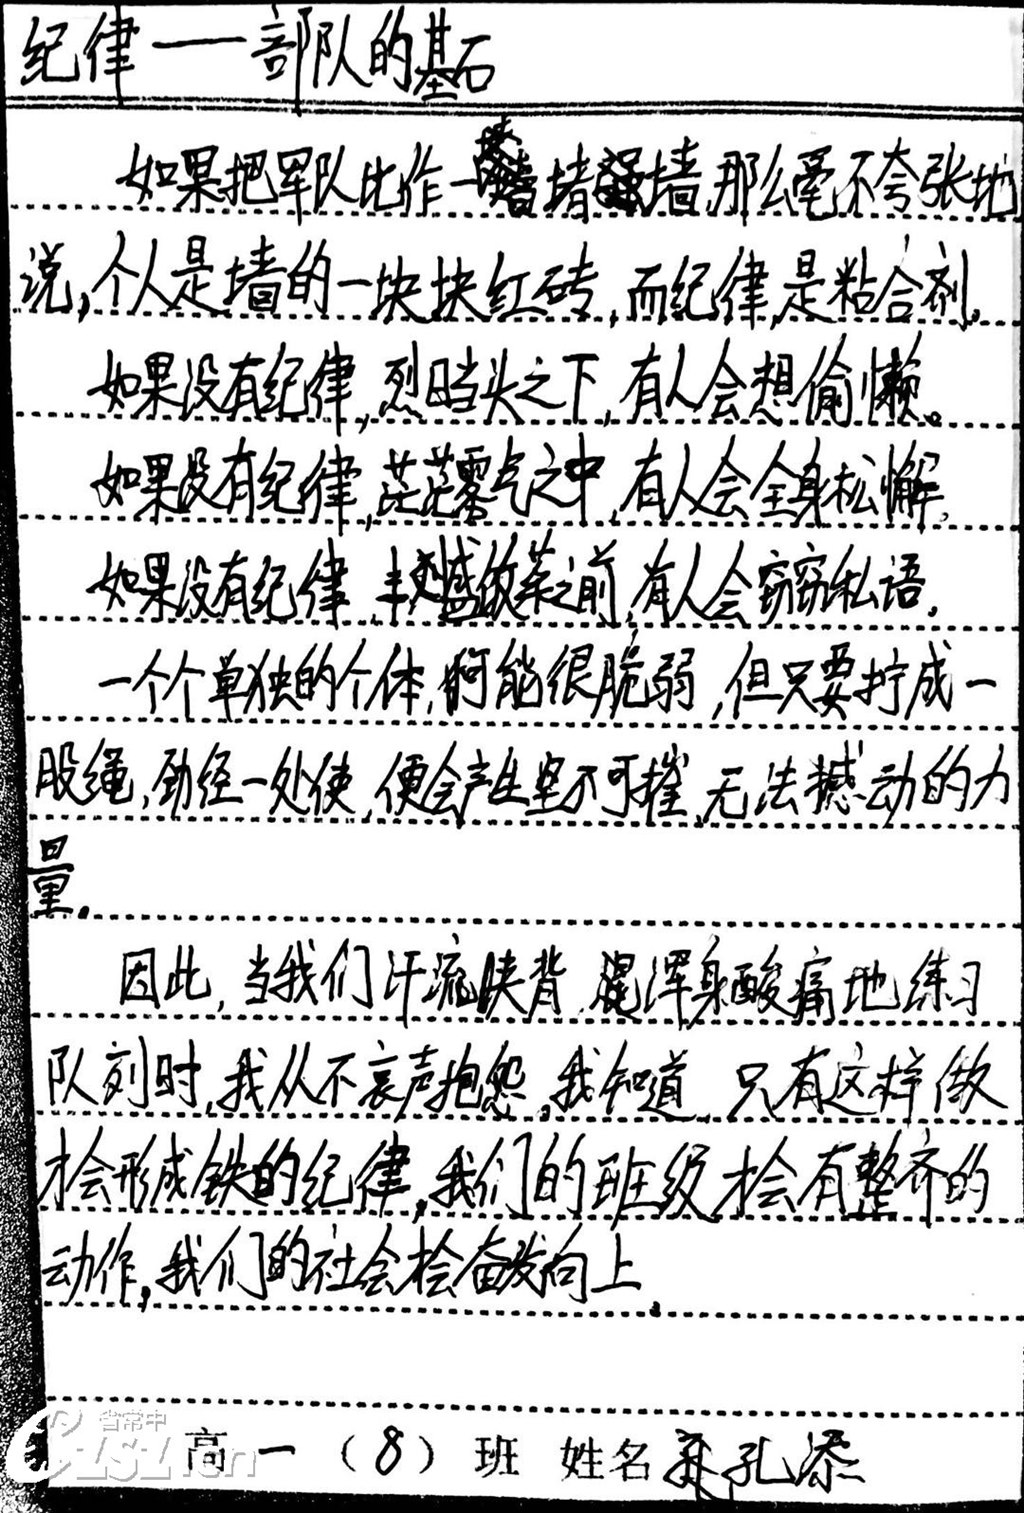 纪律——部队的基石
如果把军队比作一堵墙,那么毫不夸张地
说,个人是墙的一块块红砖,而纪律,是粘合剂。
如果没有纪律,烈日当头之下,有人会想偷懒。
如果没有纪律,茫茫雾气之中,有人会全身松懈。
如果没有纪律,丰盛饭菜之前,有人会窃窃私语。
一个个单独的个体,可能很脆弱,但只要拧成一
股绳,劲经一处使,便会产生坚不可摧,无法撼动的力
量。
因此,当我们汗流浃背,浑身酸痛地练习
队列时,我从不哀声抱怨,我知道,只有这样做
才会形成铁的纪律,我们的班级才会有整齐的
动作,我们的社会才会奋发向上.
高一(8)班 姓名 孔添
省常中